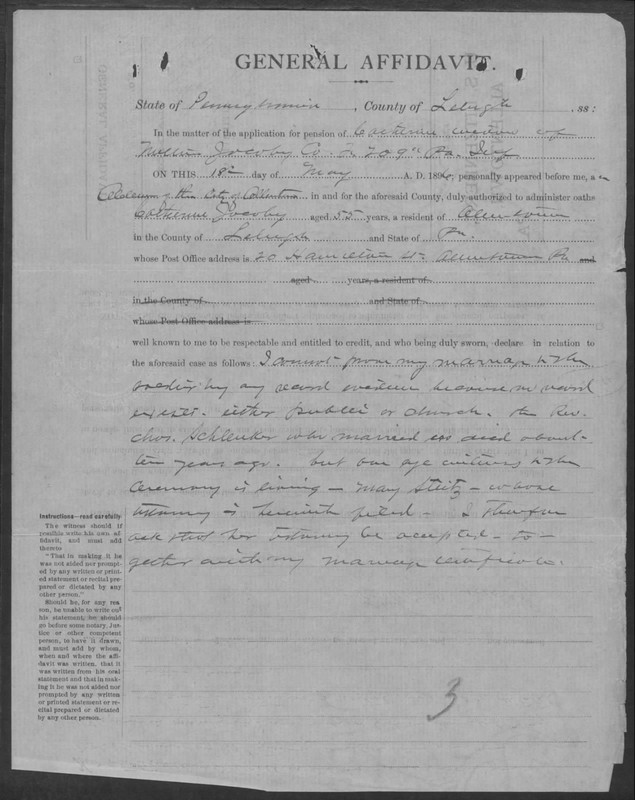 GENERAL AFFIDAVIT.
State of Pennsylvania, County of Lehigh, ss:
In the matter of the application for pension of Catherine widow of
Jacoby Co. 209th Pa. Inf
ON THIS 18th day of May A. D. 189, personally appeared before me, a
Alderman of the City of Allentown in and for the aforesaid County, duly authorized to administer oaths
Catherine Jacoby aged 55 years, a resident of Allentown
in the County of Lehigh and State of Pa.
whose Post Office address is 20 Hamilton St Allentown Pa and
aged years, a resident of
in the County of and State of
whose Post Office address is
well known to me to be respectable and entitled to credit, and who being duly sworn, declare in relation to
the aforesaid case as follows: I cannot prove my marriage to the
soldier by any record evidence because no record
exists. either public or church. the Rev.
Chas. Schlenker who married us died about
ten years ago. but one eye witness to the
Ceremony is living — Mary — whose
is herewith filed. I therefore
ask that her testimony be accepted. to-
gether with my marriage certificate.
3
Instructions—read carefully
The witness should if
possible write his own af-
fidavit, and must add
thereto
"That in making it he
was not aided nor prompt-
ed by any written or print-
ed statement or recital pre-
pared or dictated by any
other person."
Should he, for any rea
son, be unable to write out
his statement, he should
go before some notary, Jus-
tice or other competent
person, to have it drawn,
and must add by whom,
when and where the affi-
davit was written, that it
was written from his oral
statement and that in mak-
ing it he was not aided nor
prompted by any written
or printed statement or re-
cital prepared or dictated
by any other person.